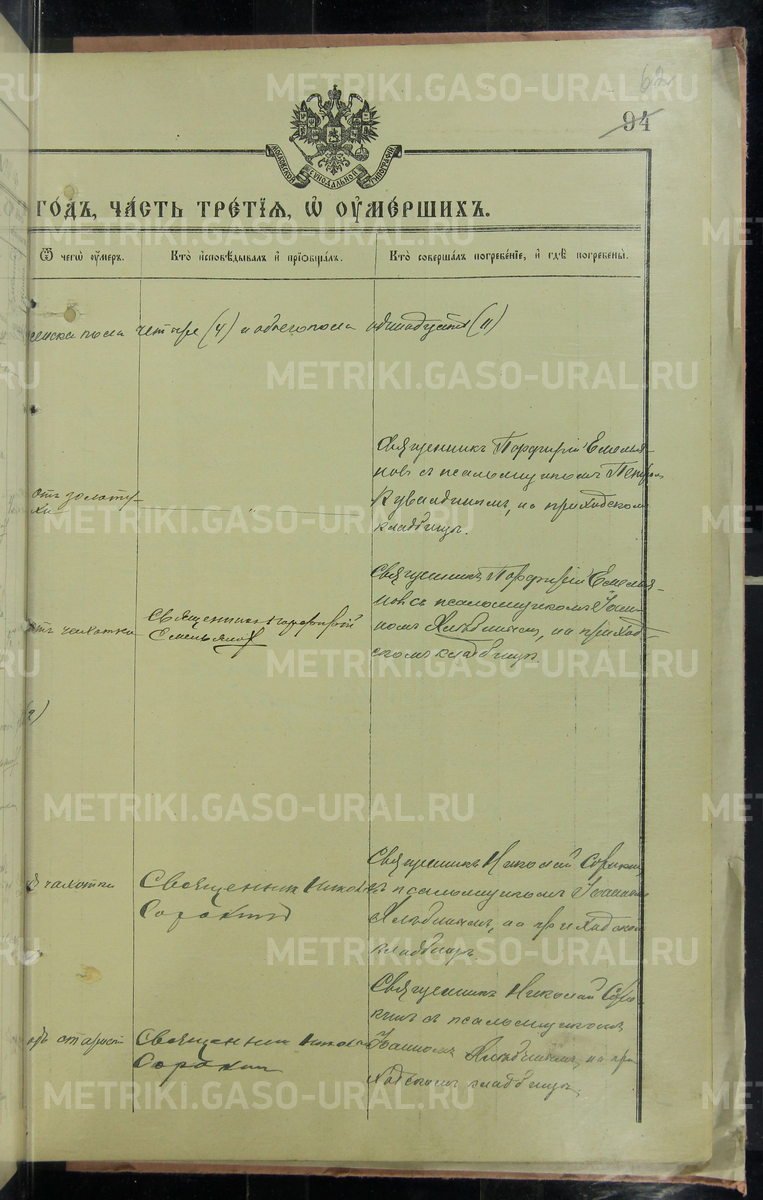 62
94
МОСКОВСКОЙ СѴНОДАЛЬНОЙ ТИПОГРАФІИ
ГОДЪ, ЧА́СТЬ ТРЕ́ТІѦ, Ѡ҆ ОУ҆МЕ́РШИХЪ.
Ѿ чегѡ̀ ᲂу҆́меръ.
Кто̀ и҆сповѣ́дывалъ и҆ прїѡбща́лъ.
Кто̀ соверша́лъ погребе́нїе, и҆ гдѣ̀ погребены̀.
женска пола четыре (4) и обоего пола одинадцать (11)
отъ золоту-
хи
Священникъ Порфирій Емелья-
новъ съ псаломщикомъ Петром
Кувалдинымъ, на приходскомъ
кладбищѣ.
отъ чахотки
Священникъ Порфирій
Емельянов
Священникъ Порфирій Емелья-
новъ съ псаломщикомъ Іоан-
номъ Хлѣбинымъ, на приход-
скомъ кладбищѣ.
чахотки
Священник Никол
Сорокин
Священникъ Николай Сорокин
съ псаломщикомъ Іоанномъ
Хлѣбинымъ, на приходском
кладбищѣ.
старости
Священник Никола
Сорокин
Священникъ Николай Соро-
кинъ съ псаломщикомъ
Іоанномъ Хлѣбинымъ, на при-
ходскомъ кладбищѣ.
METRIKI.GASO-URAL.RU